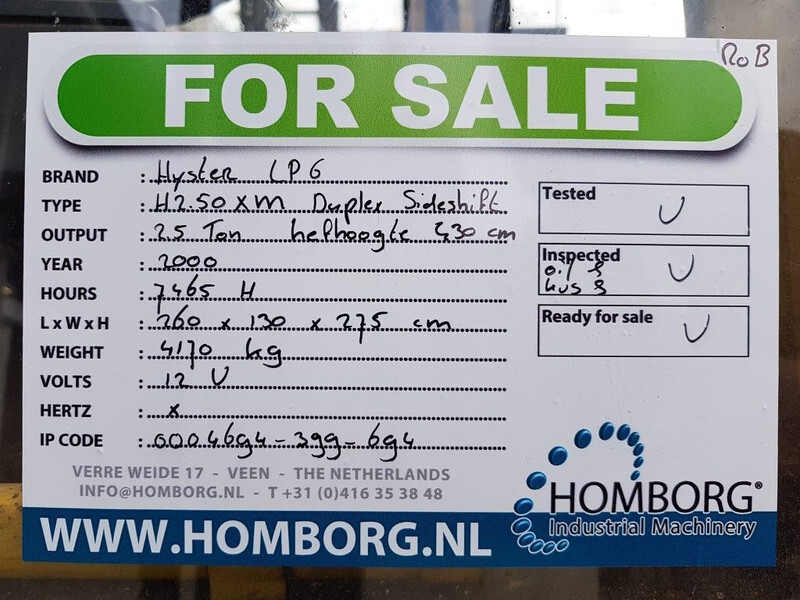 RoB
FOR SALE
BRAND : Hyster LPG
TYPE : H2.50XM Duplex Sideshift
OUTPUT : 2.5 Ton hefhoogte 430 cm
YEAR : 2000
HOURS : 7465 H
L x W x H : 260 x 130 x 275 cm
WEIGHT : 4170 kg
VOLTS : 12 V
HERTZ : x
IP CODE : 0004694-399-694
Tested V
Inspected V
oil &
Ready for sale V
VERRE WEIDE 17 - VEEN - THE NETHERLANDS
INFO@HOMBORG.NL - T +31 (0)416 35 38 48
WWW.HOMBORG.NL
HOMBORG®
Industrial Machinery